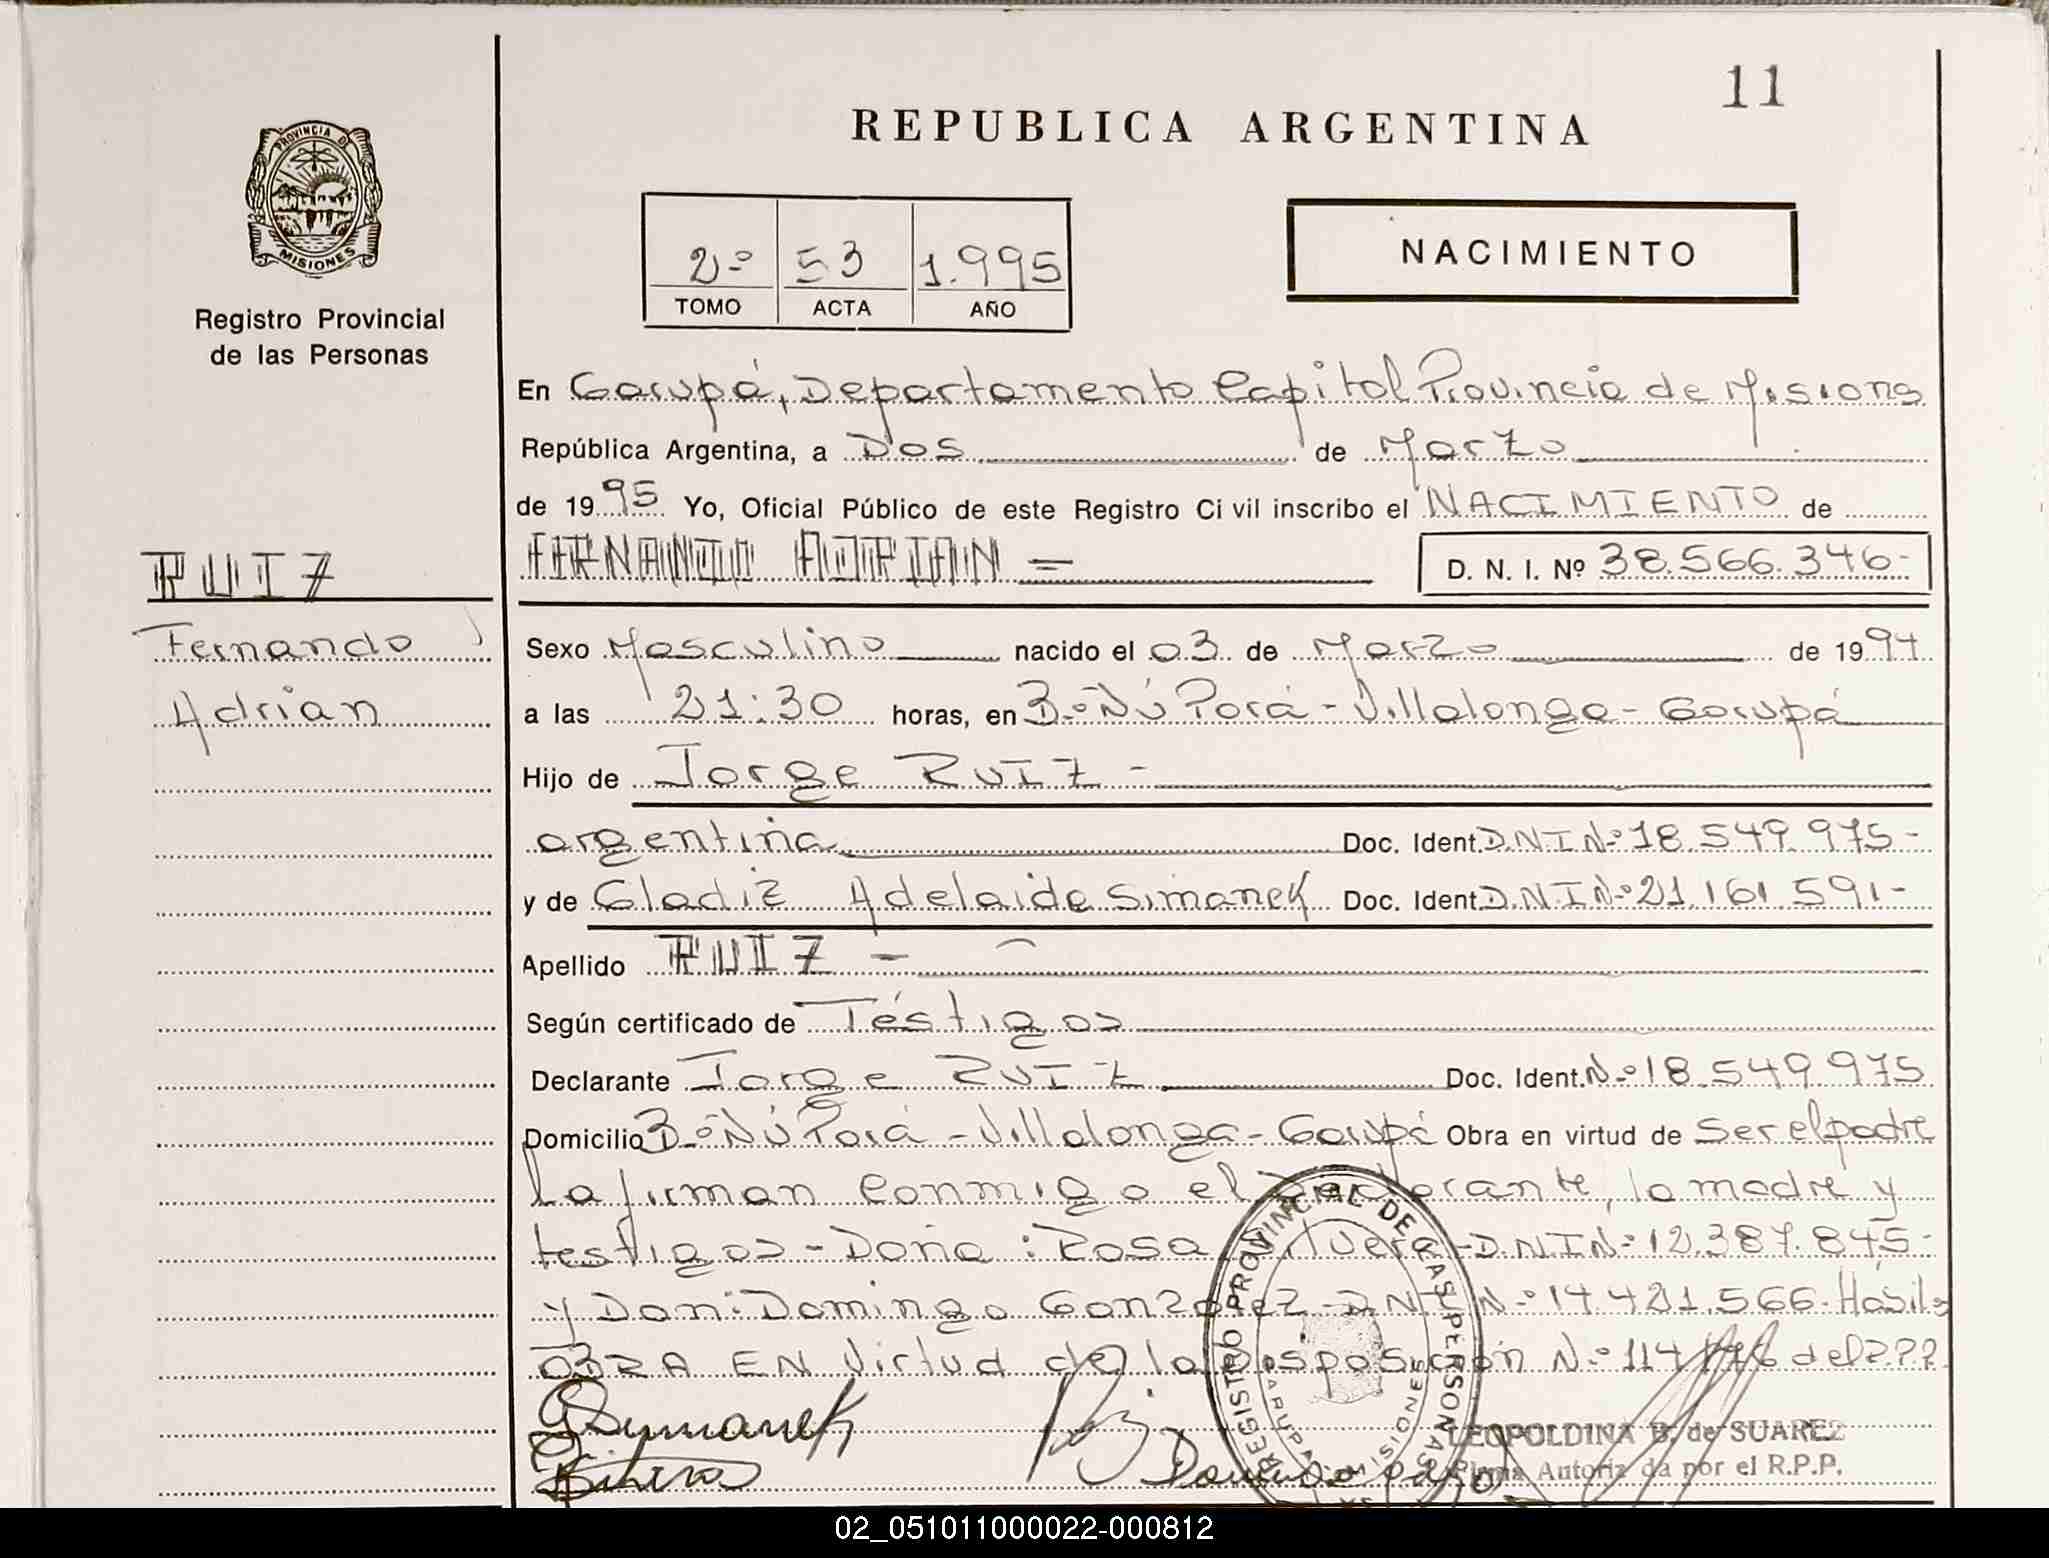 11
REPUBLICA ARGENTINA
PROVINCIA DE
MISIONES
Registro Provincial
de las Personas
2º 53 1.995
TOMO ACTA AÑO
NACIMIENTO
En Garupá, Departamento Capital Provincia de Misiones
República Argentina, a Dos de Marzo
de 1995 Yo, Oficial Público de este Registro Civil inscribo el NACIMIENTO de
RUIZ
FERNANDO ADRIAN =
D. N. I. Nº 38.566.346-
Fernando
Adrian
Sexo Masculino nacido el 03 de Marzo de 1994
a las 21:30 horas, en Bº Ñú Porá - Villalonga - Garupá
Hijo de Jorge RUIZ -
argentina Doc. Ident. D.N.I Nº 18.549.975-
y de Gladiz Adelaida Simanek Doc. Ident. D.N.I Nº 21.161.591-
Apellido RUIZ -
Según certificado de Téstigos
Declarante Jorge RUIZ Doc. Ident. Nº 18.549.975
Domicilio Bº Ñú Porá - Villalonga - Garupá Obra en virtud de Ser el padre
La firman conmigo el Declarante, la madre y
testigos - Doña: Rosa - D.N.I Nº 12.387.845-
y Don: Domingo Gonzalez - D.N.I Nº 14.421.566. Hábiles
OBRA EN Virtud de la Disposición Nº 114 del
GSimanek
REGISTRO PROVINCIAL DE LAS PERSONAS
GARUPA MISIONES
LEOPOLDINA B. de SUAREZ
Firma Autorizada por el R.P.P.
02_051011000022-000812